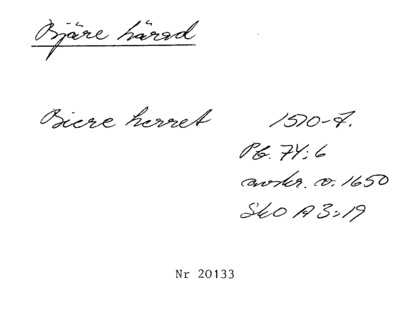 Bjäre härad
Biere herret 1510-t.
Pb. 74:6
avskr. o. 1650
Sko A 3:19
Nr 20133